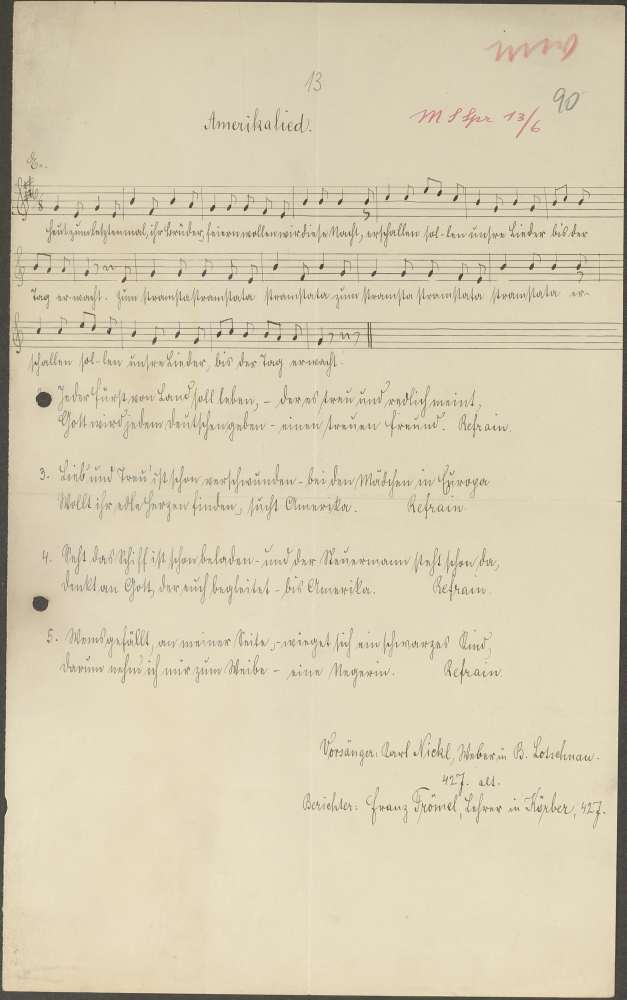 13
90
M S Spr 13/6
Amerikalied.
Heut zum letzten mal, ihr Brüder, feiern wollen wir diese Nacht, erschallen sol-len unsre Lieder bis der
Tag er-wacht. Zum stramstastramstata stramstata zum stramsta stramstata stramstata er-
schallen sol-len unsre Lieder, bis der Tag erwacht.
Jeder Fürst von Land soll leben, - der es treu und redlich meint,
Gott wird jedem Deutschen geben - einen treuen Freund. Refrain.
3. Lieb' und Treu' ist schon verschwunden - bei den Mädchen in Europa
Wollt ihr edle Herzen finden, sucht Amerika. Refrain
4. Seht das Schiff ist schon beladen - und der Steuermann steht schon da,
denkt an Gott, der euch begleitet - bis Amerika. Refrain.
5. Wems gefällt, an meiner Seite, - wieget sich ein schwarzes Kind,
Darum nehm' ich mir zum Weibe - eine Negerin. Refrain.
Vorsänger: Karl Nickl, Weber in B. Lotschnau.
42 J. alt.
Berichter: Franz Trömel, Lehrer in Körber, 42 J.